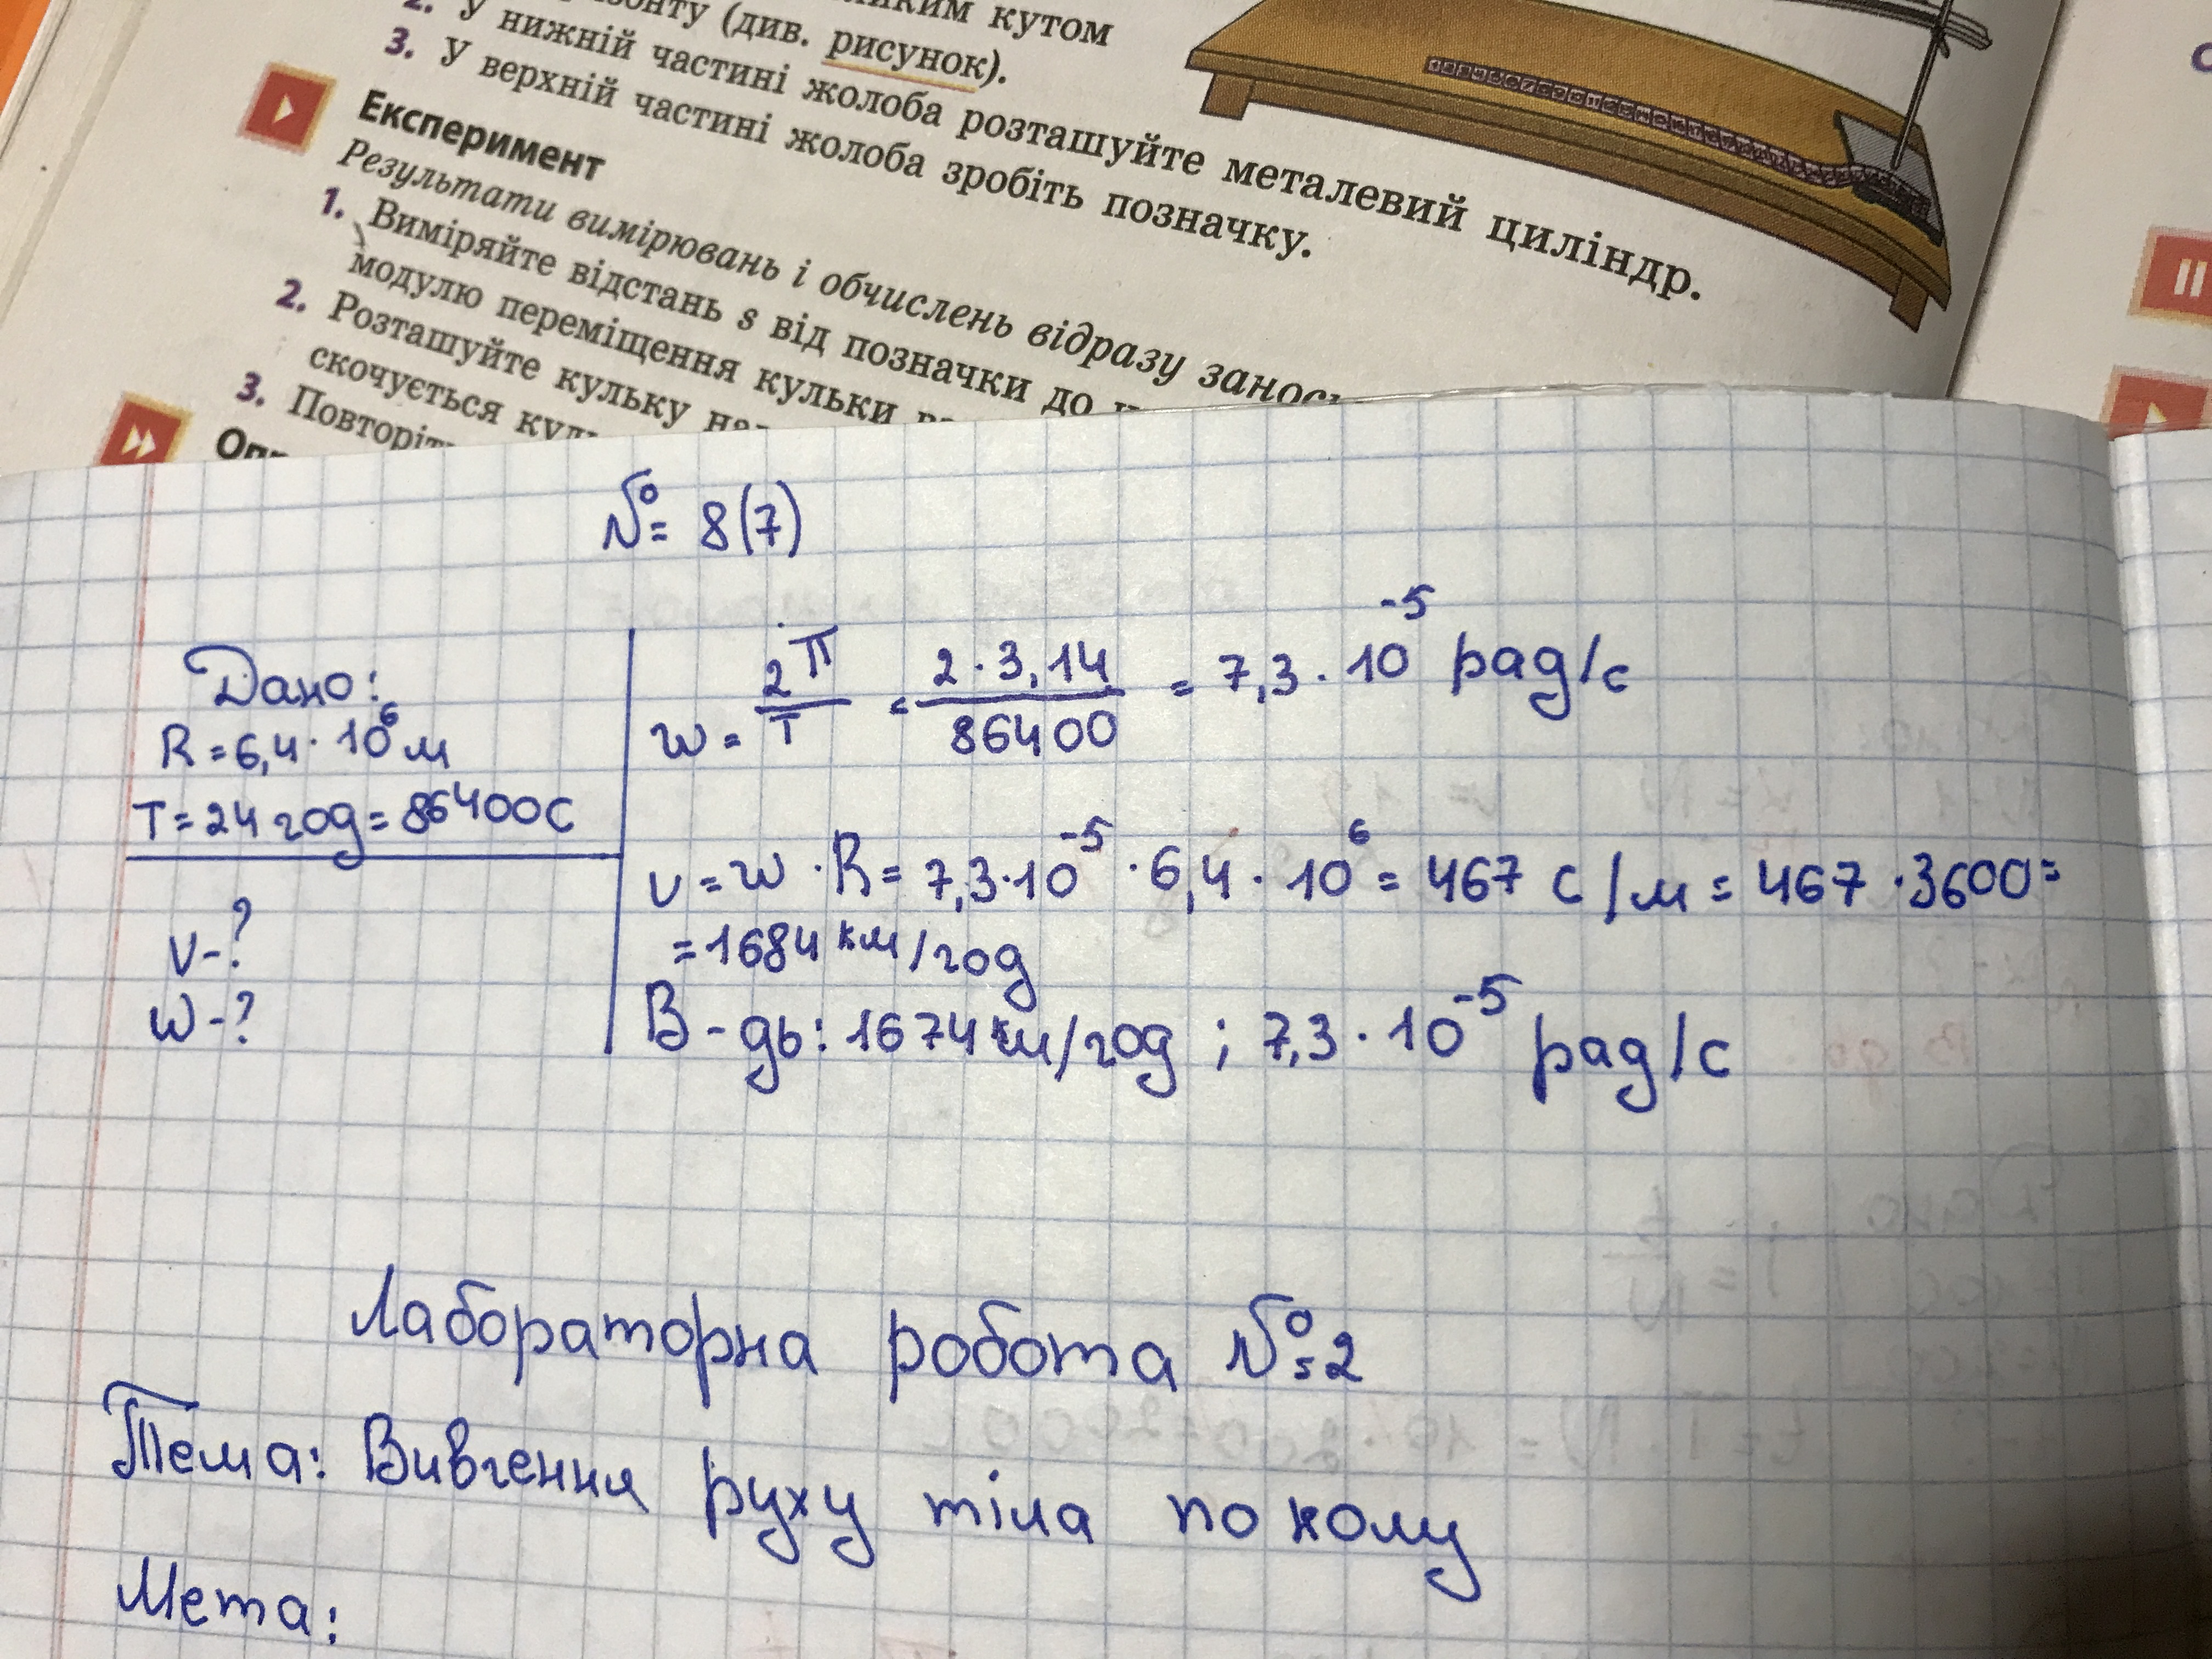 ликим кутом
зонту (див. рисунок).
2. У нижній частині жолоба розташуйте металевий циліндр.
3. У верхній частині жолоба зробіть позначку.
Експеримент
Результати вимірювань і обчислень відразу
1. Виміряйте відстань s від позначки до
модулю переміщення кульки
2. Розташуйте кульку
скочується
3.
№ 8(7)
Дано:
R=6,4·10⁶м
T=24год=86400С
v-?
w-?
w = 2π/T = 2·3,14/86400 = 7,3·10⁻⁵ рад/с
v=w·R=7,3·10⁻⁵·6,4·10⁶=467 с/м=467·3600=
=1684 км/год
В-дь: 1674км/год; 7,3·10⁻⁵ рад/с
Лабораторна робота №2
Тема: Вивчення руху тіла по колу
Мета: